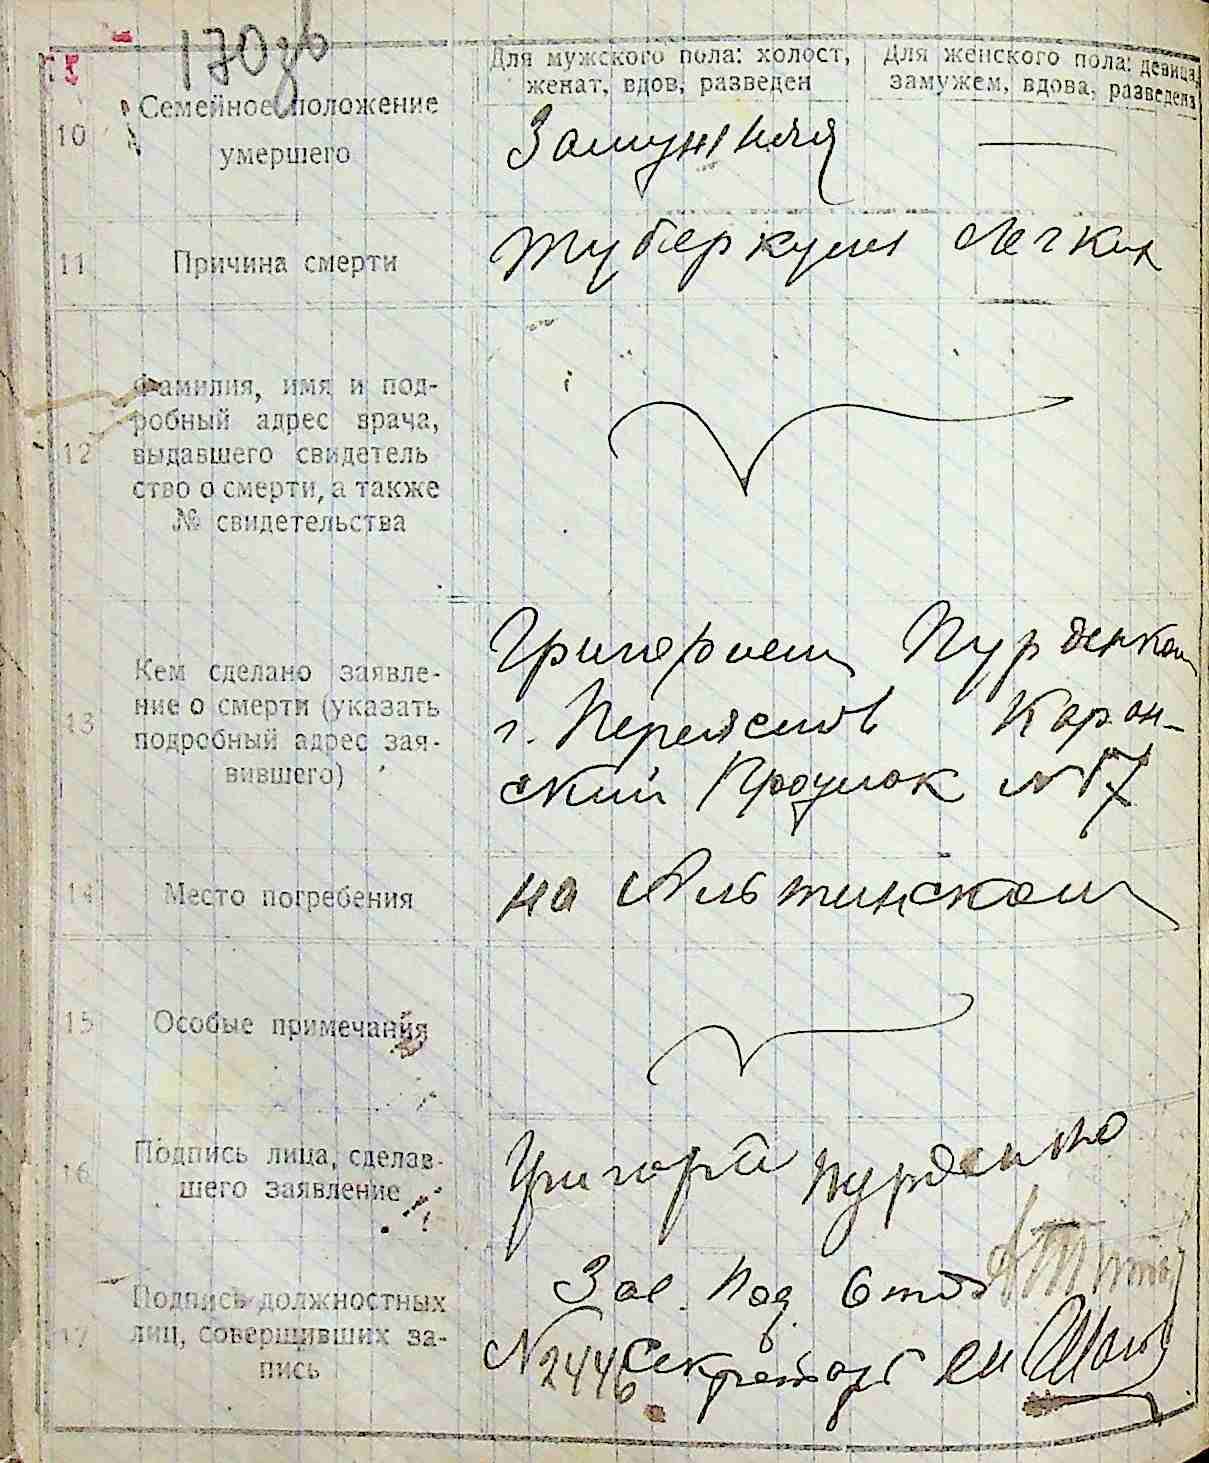 170зв
Для мужского пола: холост,
женат, вдов, разведен
Для женского пола: девица,
замужем, вдова, разведена
10
Семейное положение
умершего
Замужняя
11
Причина смерти
туберкулез легких
12
Фамилия, имя и под-
робный адрес врача,
выдавшего свидетель
ство о смерти, а также
№ свидетельства
13
Кем сделано заявле-
ние о смерти (указать
подробный адрес зая-
вившего)
Григорием Пурденком
г. Переяслов Каран-
ский № 17
14
Место погребения
на Альтинском
15
Особые примечания
16
Подпись лица, сделав-
шего заявление
Григорій Пурденко
17
Подпись должностных
лиц, совершивших за-
пись
Зав. Под.
№ 2446 Секретарь